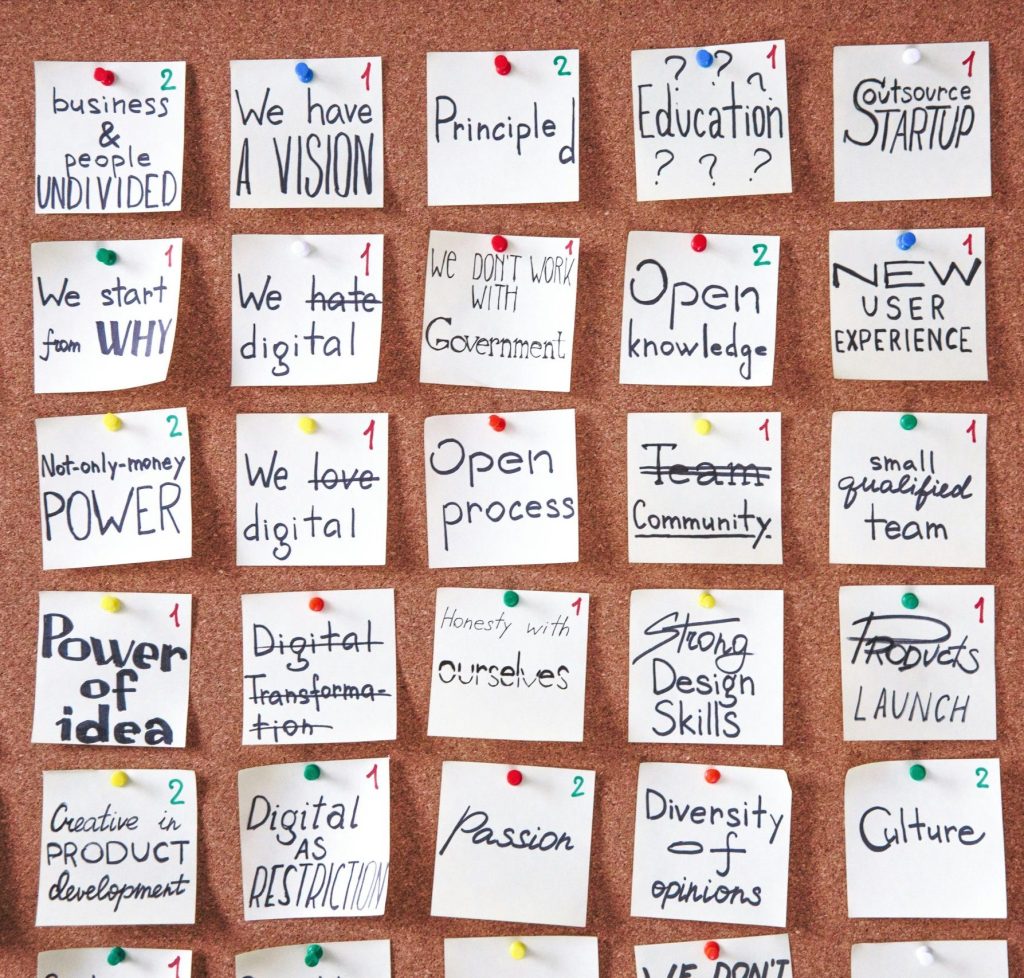 2
business
&
people
UNDIVIDED
1
We have
A VISION
2
Principled
1
? ? ?
Education
? ? ?
1
Outsource
STARTUP
1
We start
from WHY
1
We hate
digital
1
WE DON'T WORK
WITH
Government
2
Open
knowledge
1
NEW
USER
EXPERIENCE
2
Not-only-money
POWER
1
We love
digital
Open
process
1
Team
Community
1
small
qualified
team
1
Power
of
idea
Digital
Transforma-
tion
1
Honesty with
ourselves
Strong
Design
Skills
1
PRODUCTS
LAUNCH
2
Creative in
PRODUCT
development
1
Digital
AS
RESTRICTION
2
Passion
Diversity
of
opinions
2
Culture
1
WE DON'T